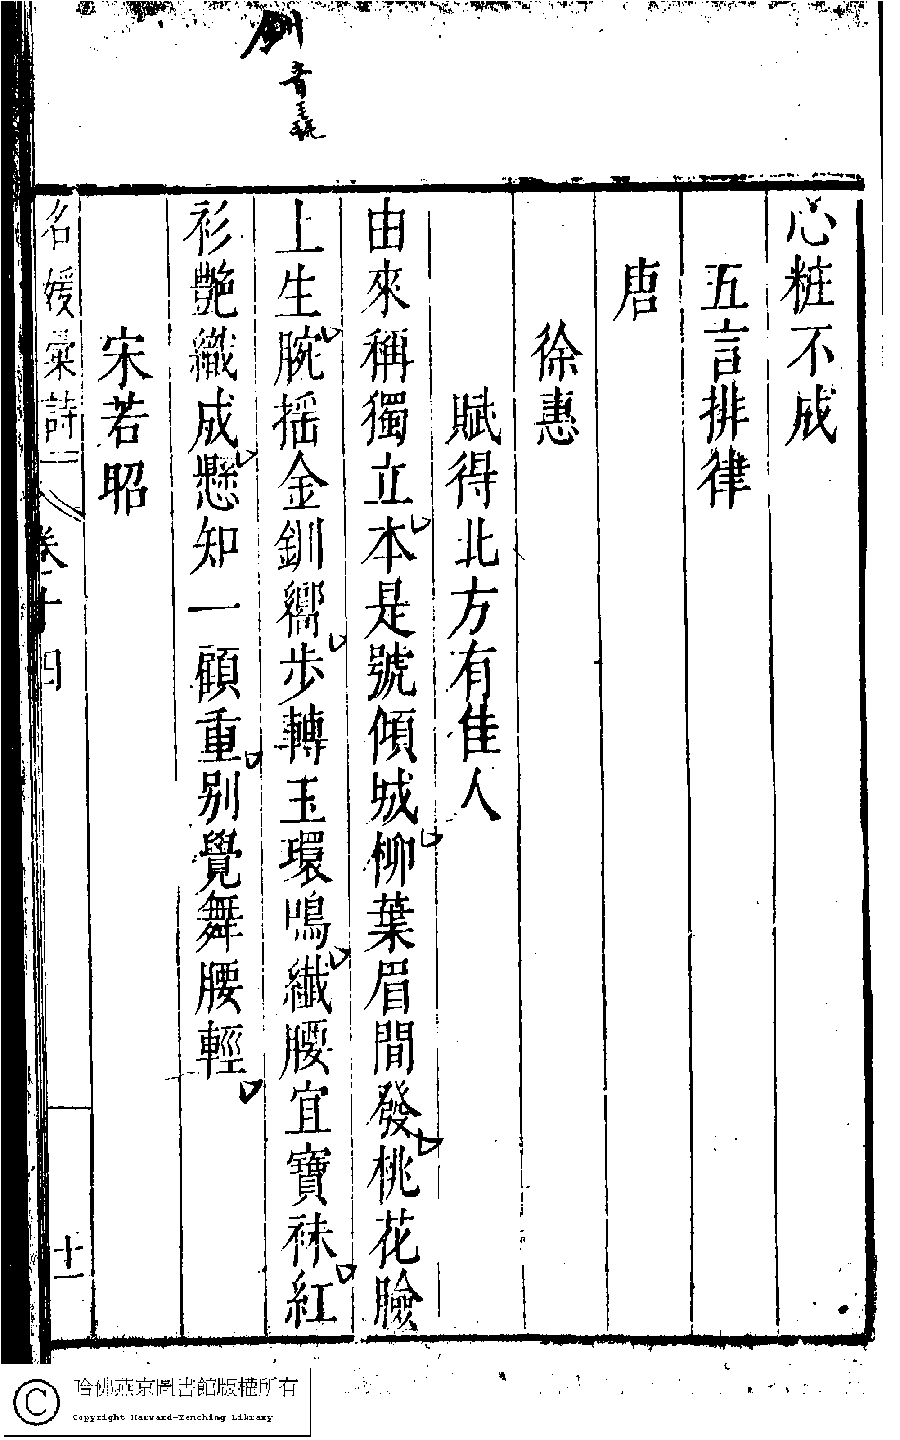 釧
音
心粧不成
五言排律
唐
徐惠
賦得北方有佳人
由來稱獨立本是號傾城柳葉眉間發桃花臉
上生腕揺金釧嚮步轉玉環鳴纖腰宜寶袜紅
衫艶織成懸知一顧重别覺舞腰輕
宋若昭
名媛彙詩
卷十四
十一
哈佛燕京圖書館版權所有
Copyright Harvard-Yenching Library